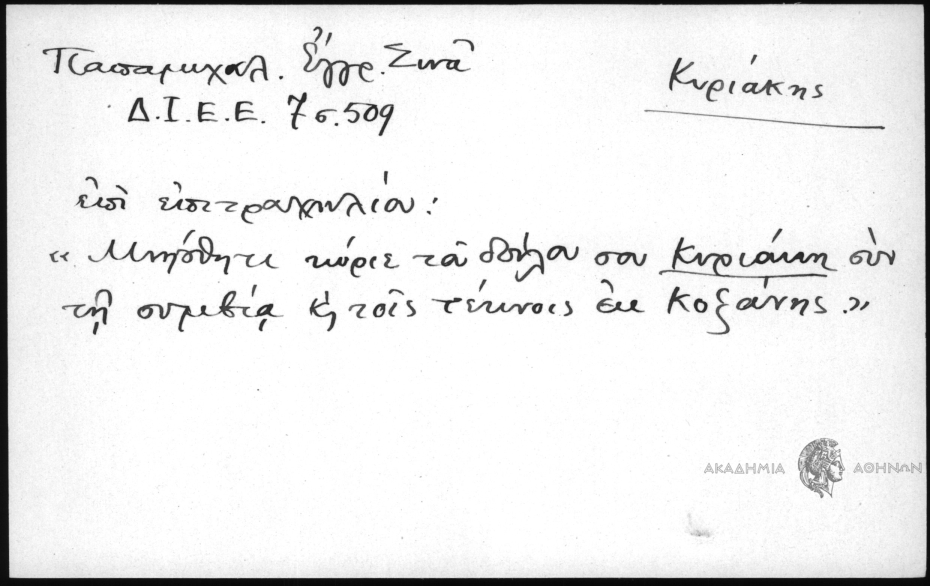 Παπαμιχαλ. Ἔγγρ. Σινᾶ
Κυριάκης
Δ.Ι.Ε.Ε. 7 σ. 509
ἐπὶ ἐπιτραχηλίου:
« Μνήσθητι κύριε τοῦ δούλου σου Κυριάκη σὺν
τῇ συμβίᾳ κ τοῖς τέκνοις ἐκ Κοζάνης.»
ΑΚΑΔΗΜΙΑ ΑΘΗΝΩΝ